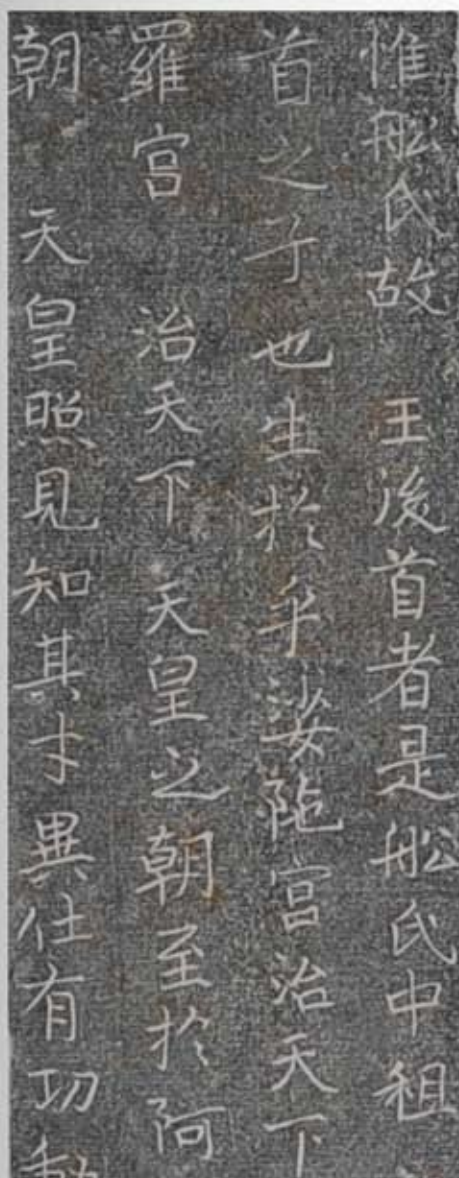 惟舩氏故　王後首者是舩氏中租
首之子也生於乎娑陁宮治天下
羅宮　治天下　天皇之朝至於阿
朝　天皇照見知其才異仕有功